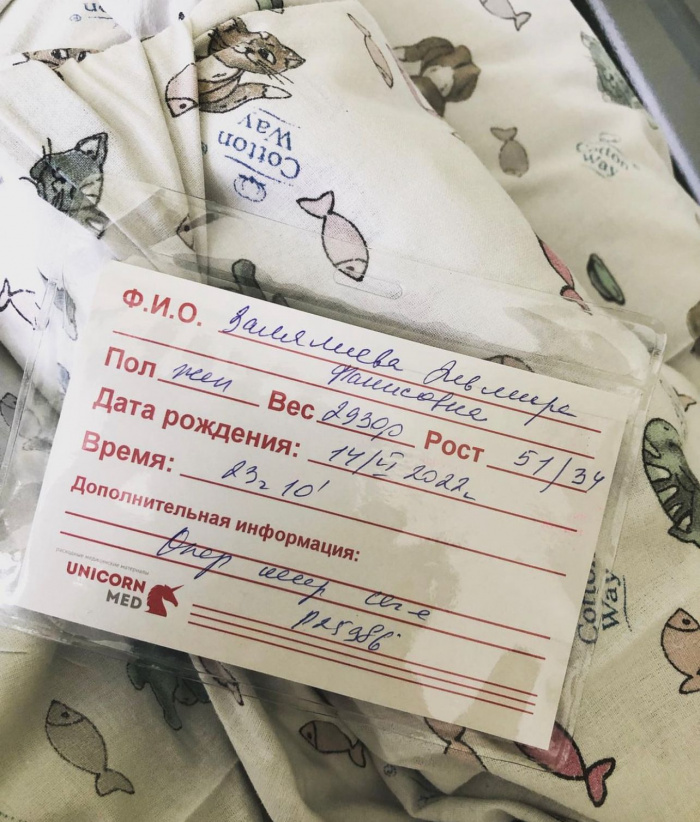 Cotton
Way
Cotton
Way
Ф.И.О. Залялиева Эльмира
Фанисовна
Пол жен Вес 2930р Рост 51/34
Дата рождения: 14/VI 2022г
Время: 23ч 10'
Дополнительная информация:
расходные медицинские материалы
UNICORN
MED
Cotton
Way